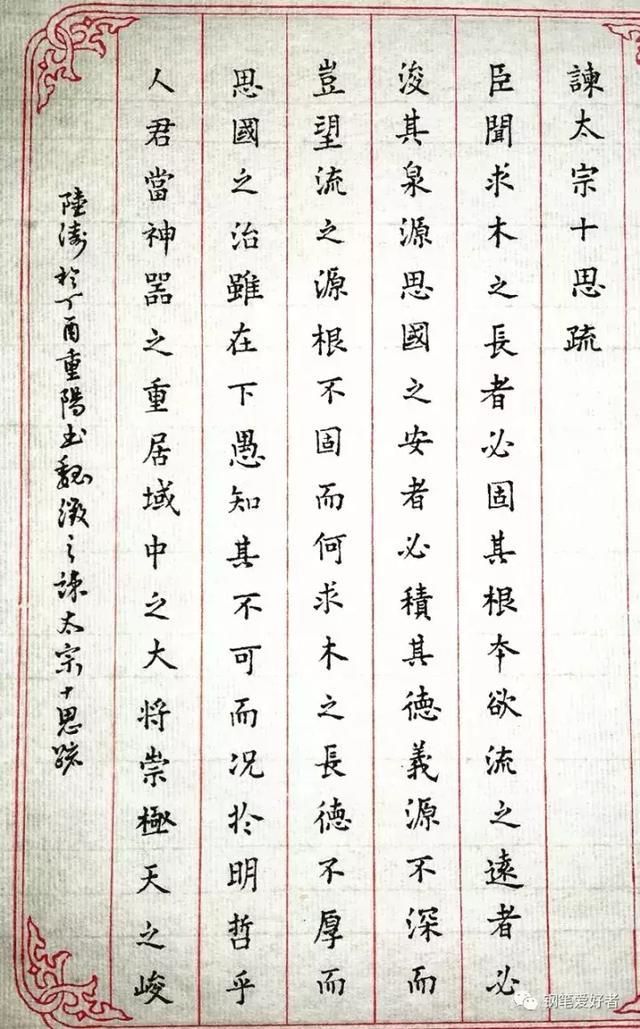 諫太宗十思疏
臣聞求木之長者必固其根本欲流之遠者必
浚其泉源思國之安者必積其德義源不深而
豈望流之源根不固而何求木之長德不厚而
思國之治雖在下愚知其不可而况扵明哲乎
人君當神器之重居域中之大将崇極天之峻
陸濤扵丁酉重陽书魏徵之諫太宗十思疏
钢笔爱好者